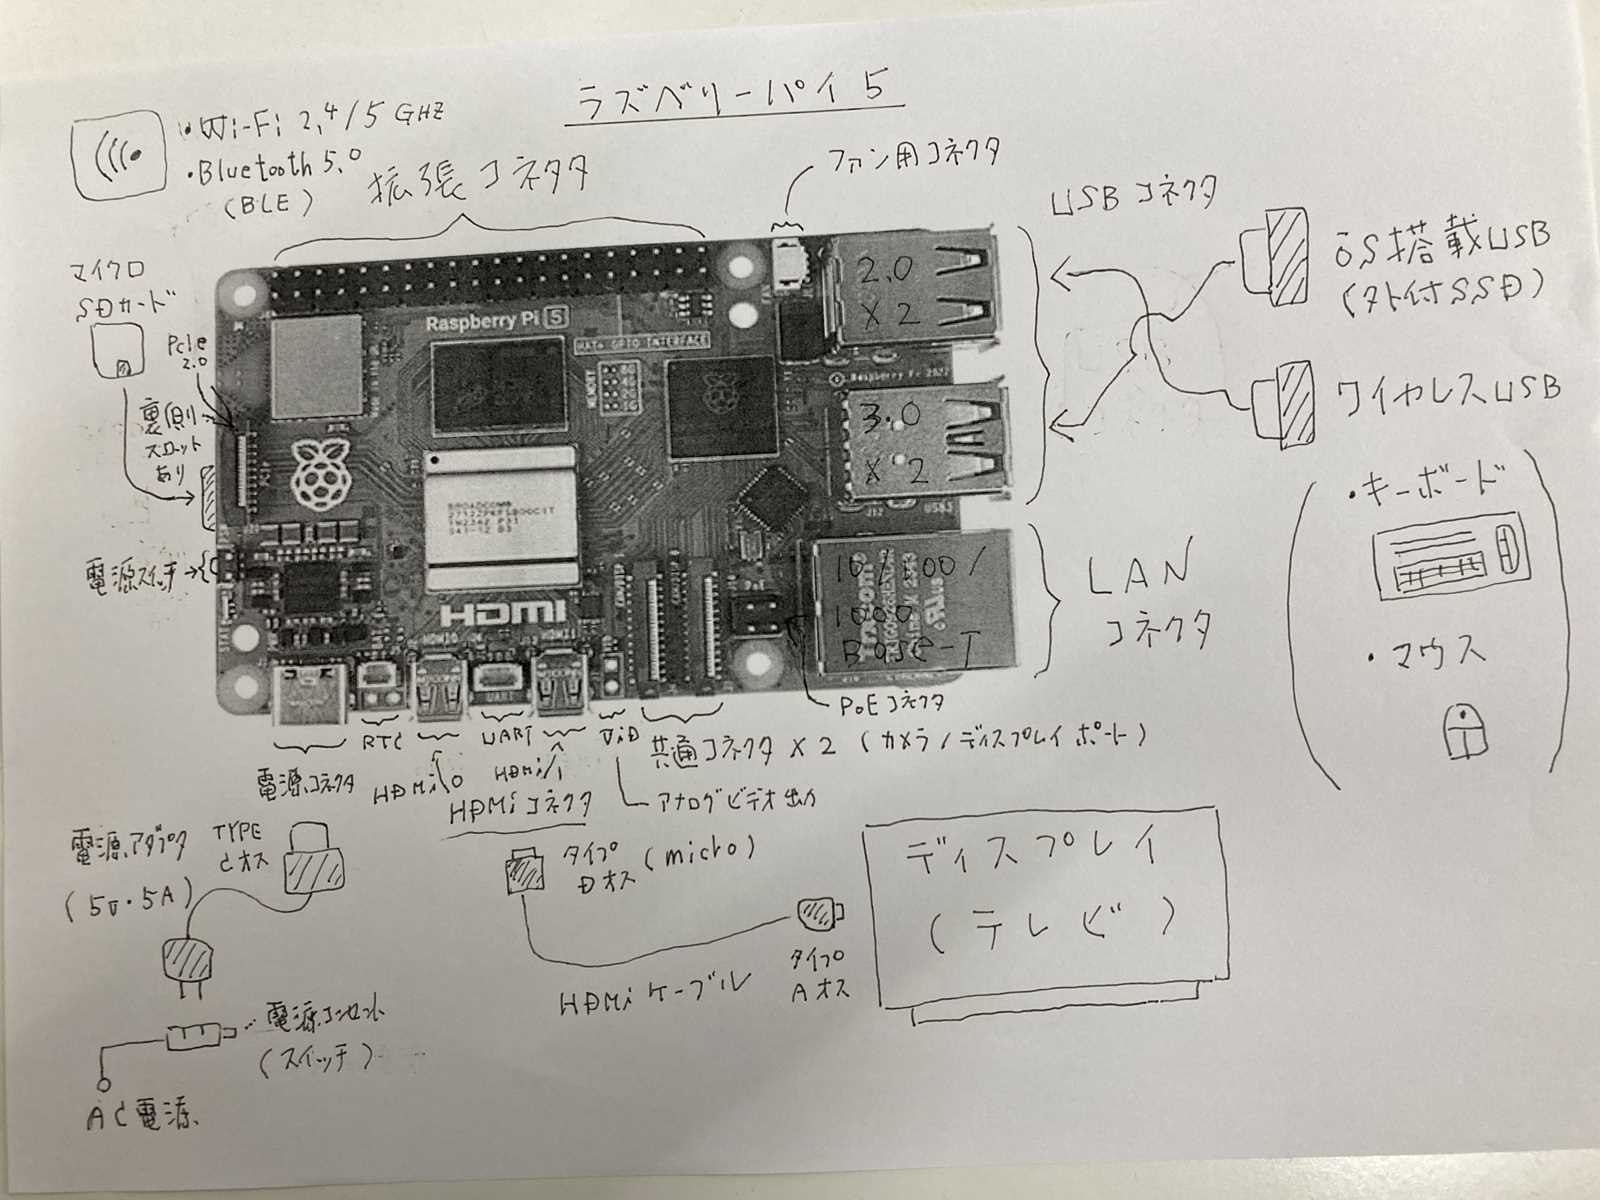 ラズベリーパイ5
・Wi-Fi 2.4/5 GHz
・Bluetooth 5.0
(BLE)
拡張コネクタ
ファン用コネクタ
USBコネクタ
OS搭載USB
(外付SSD)
ワイヤレスUSB
・キーボード
・マウス
マイクロ
SDカード
PcIe
2.0
裏側
スロット
あり
電源スイッチ
Raspberry Pi 5
2.0
X2
Raspberry Pi
3.0
X2
J12
USB3
HDMI
HDMI0
HDMI1
UART
10/100/
1000
Base-T
LAN
コネクタ
PoEコネクタ
電源コネクタ
RTC
HDMi0
UART
HDMi1
HDMiコネクタ
ViD
アナログビデオ出力
共通コネクタX2(カメラ/ディスプレイポート)
電源アダプタ
(5V・5A)
TYPE
Cオス
タイプ
Dオス
(micro)
HDMiケーブル
タイプ
Aオス
ディスプレイ
(テレビ)
電源コンセント
(スイッチ)
AC電源